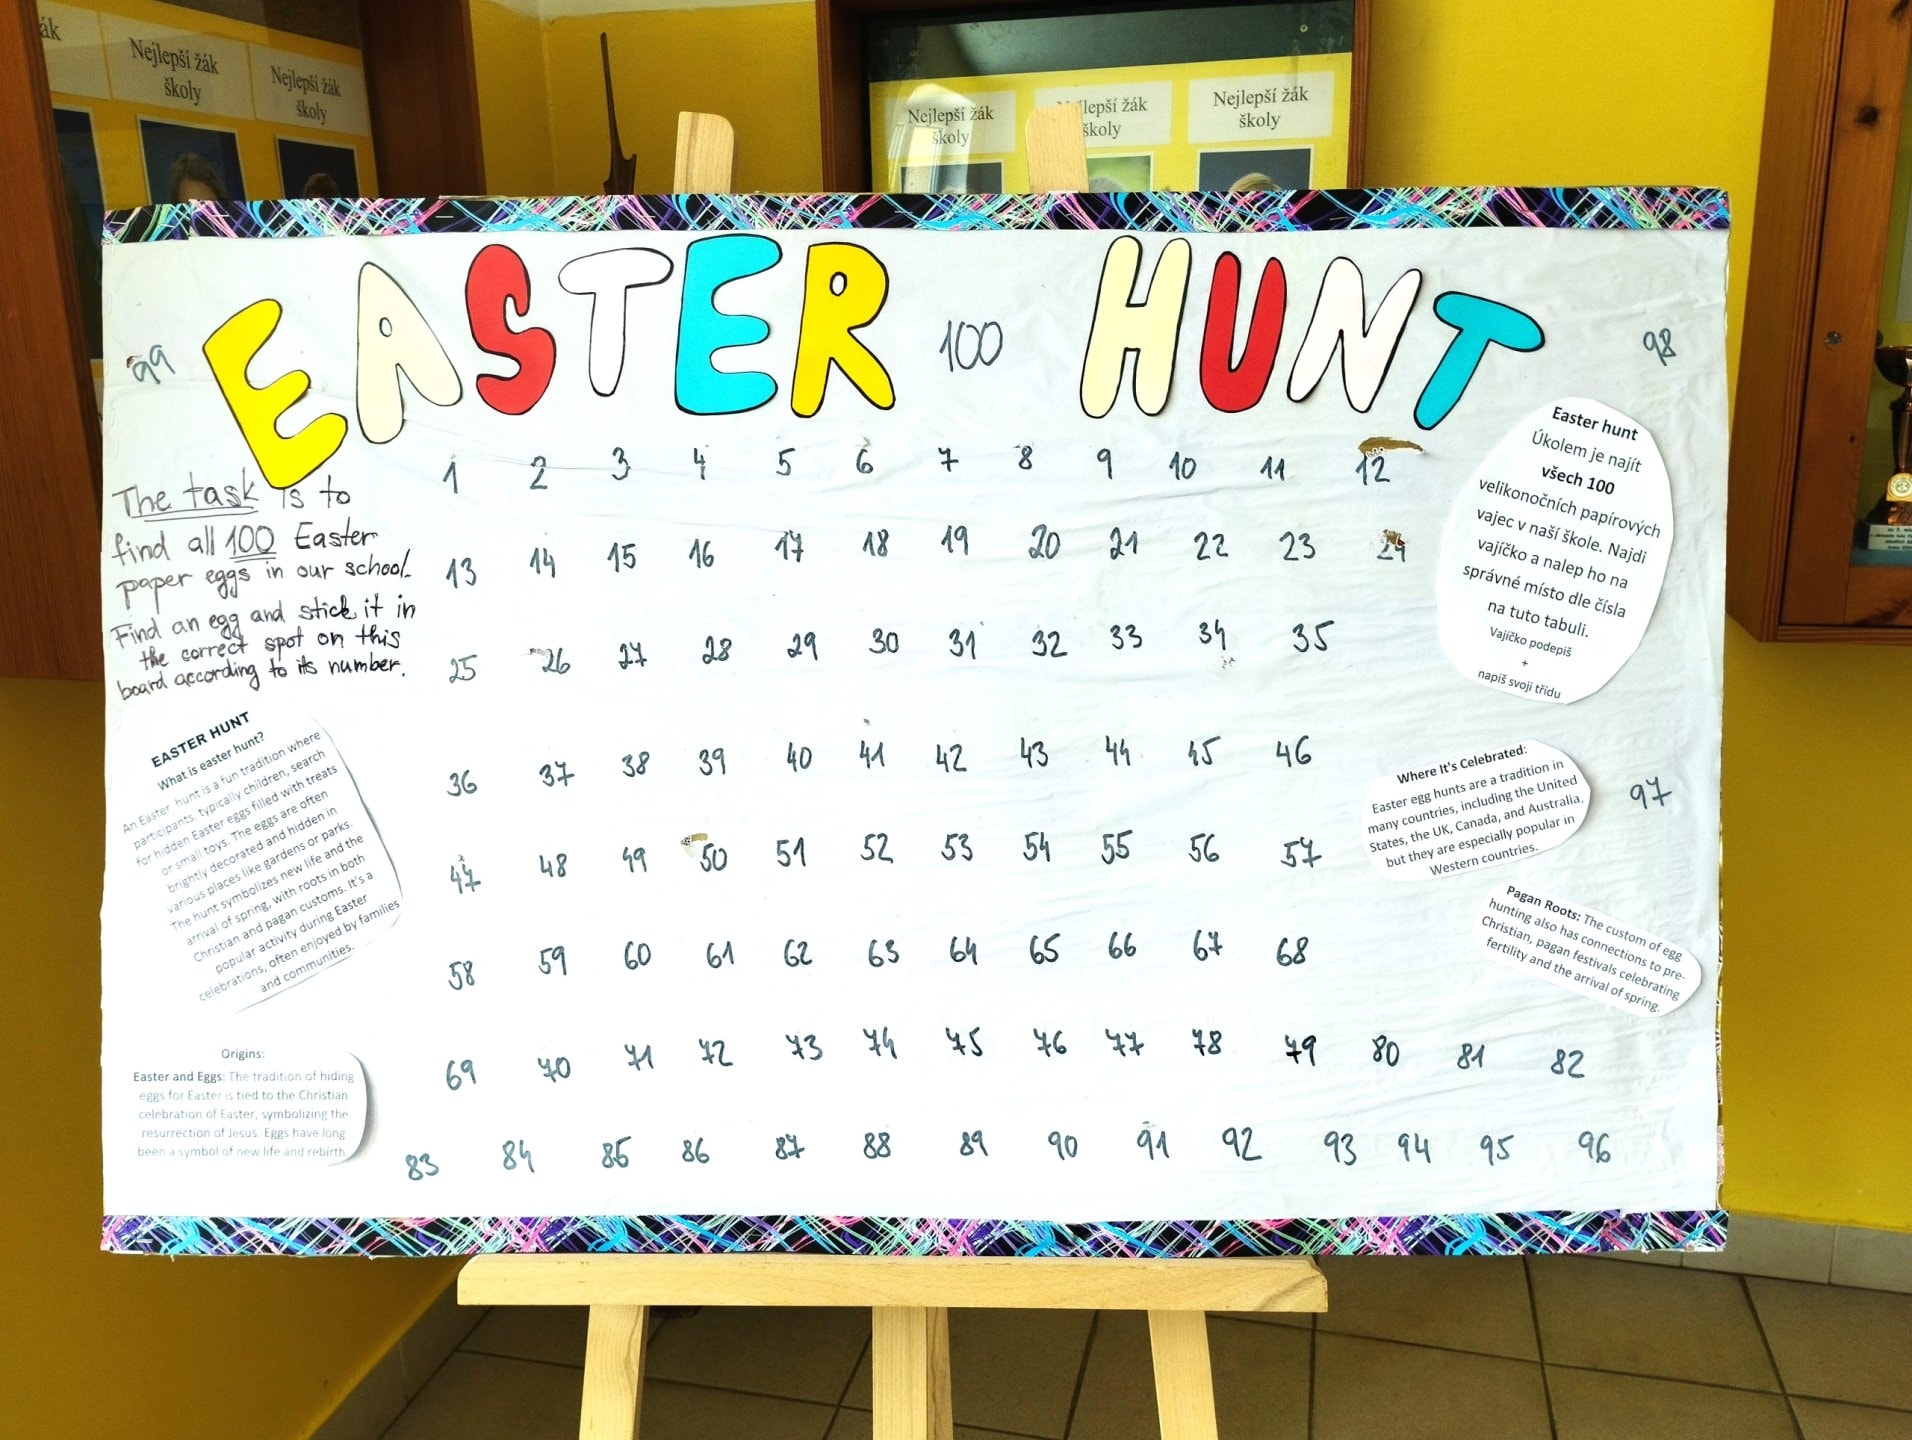 žák
Nejlepší žák
školy
Nejlepší žák
školy
Nejlepší žák
školy
školy
Nejlepší žák
školy
EASTER HUNT
99
100
98
The task is to
find all 100 Easter
paper eggs in our school.
Find an egg and stick it in
the correct spot on this
board according to its number.
1 2 3 4 5 6 7 8 9 10 11 12
13 14 15 16 17 18 19 20 21 22 23 24
25 26 27 28 29 30 31 32 33 34 35
36 37 38 39 40 41 42 43 44 45 46
47 48 49 50 51 52 53 54 55 56 57
58 59 60 61 62 63 64 65 66 67 68
69 70 71 72 73 74 75 76 77 78 79 80 81 82
83 84 85 86 87 88 89 90 91 92 93 94 95 96
97
EASTER HUNT
What is easter hunt?
An Easter hunt is a fun tradition where
participants, typically children, search
for hidden Easter eggs filled with treats
or small toys. The eggs are often
brightly decorated and hidden in
various places like gardens or parks.
The hunt symbolizes new life and the
arrival of spring, with roots in both
Christian and pagan customs. It's a
popular activity during Easter
celebrations, often enjoyed by families
and communities.
Origins:
Easter and Eggs: The tradition of hiding
eggs for Easter is tied to the Christian
celebration of Easter, symbolizing the
resurrection of Jesus. Eggs have long
been a symbol of new life and rebirth
Easter hunt
Úkolem je najít
všech 100
velikonočních papírových
vajec v naší škole. Najdi
vajíčko a nalep ho na
správné místo dle čísla
na tuto tabuli.
Vajíčko podepiš
+
napiš svoji třídu
Where It's Celebrated:
Easter egg hunts are a tradition in
many countries, including the United
States, the UK, Canada, and Australia,
but they are especially popular in
Western countries.
Pagan Roots: The custom of egg
hunting also has connections to pre-
Christian, pagan festivals celebrating
fertility and the arrival of spring.